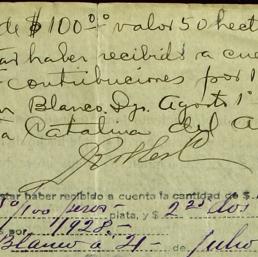 de $100.%% valor 50 hect
tar haber recibido a cue
contribuciones por 1
Blanco. Dgo. Agosto 1º
a Catalina del A
star haber recibido a cuenta la cantidad de $
%100 pesos plata, y $ 2 dos
s por 1928.-
Blanco a 21- de Julio